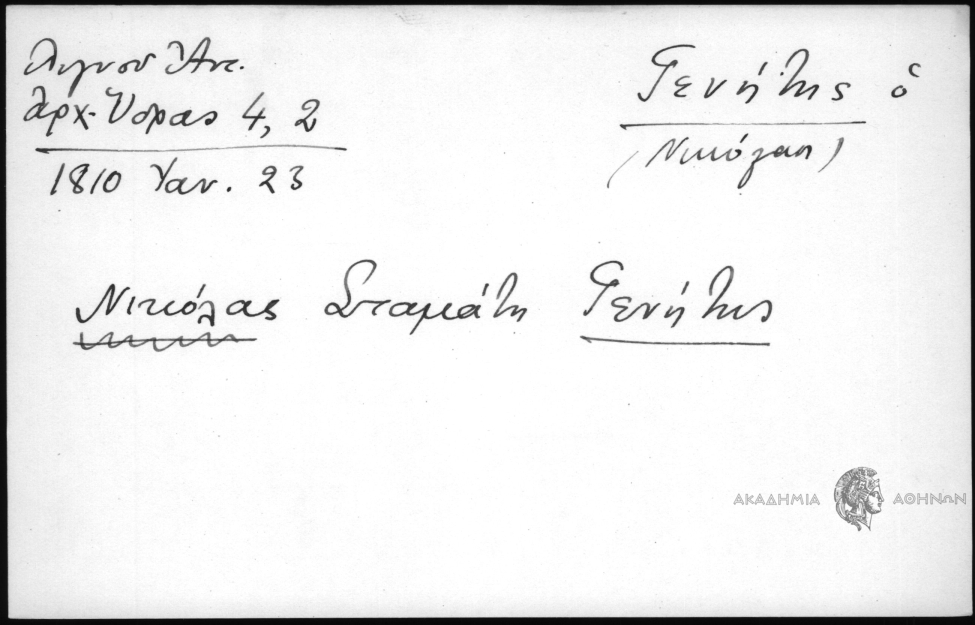 Λιγνού Ἀντ.
Ἀρχ. Ὕδρας 4, 2
1810 Ἰαν. 23
Γενήτης ὁ
(Νικόλας)
Νικόλας Σταμάτη Γενήτης
ΑΚΑΔΗΜΙΑ ΑΘΗΝΩΝ